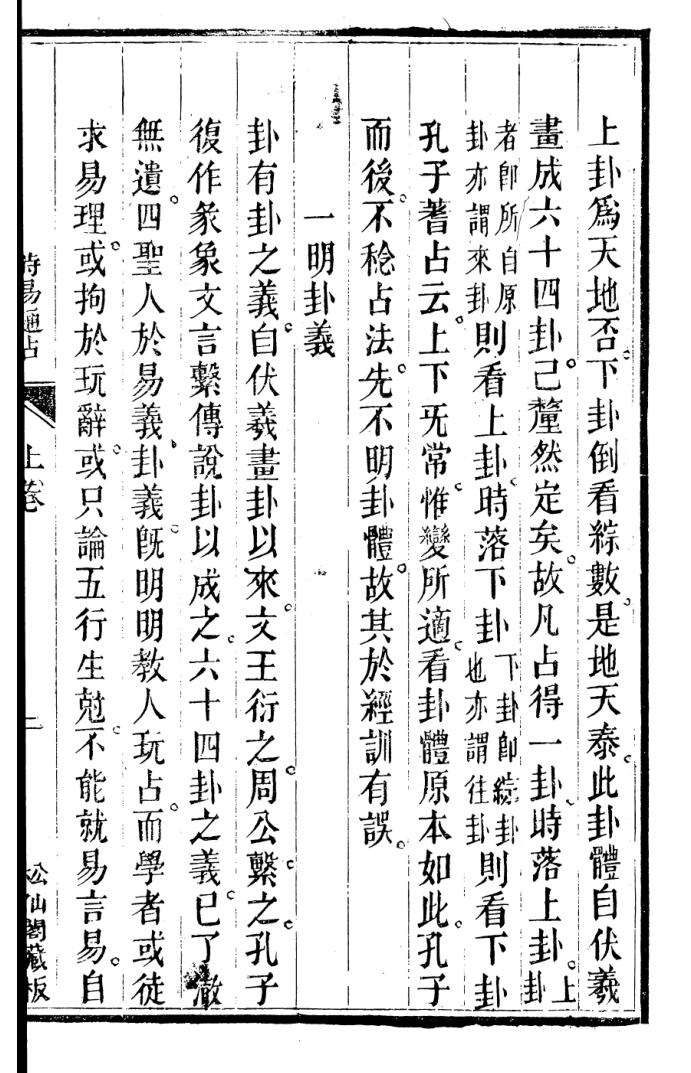 上卦爲天地否。下卦倒看綜數。是地天泰。此卦體自伏羲
畫成六十四卦。已釐然定矣。故凡占得一卦、時落上卦。上卦
者卽所自原卦亦謂來卦則看上卦。時落下卦下卦卽綜卦也亦謂往卦則看下卦
孔子蓍占云。上下旡常。惟變所適。看卦體原本如此。孔子
而後。不稔占法。先不明卦體。故其於經訓有誤。
一明卦義
卦有卦之義。自伏羲畫卦以來。文王衍之。周公繫之。孔子
復作彖象文言繫傳說卦以成之。六十四卦之義。已了澈
無遺。四聖人於易義、卦義。旣明明教人玩占。而學者或徒
求易理。或拘於玩辭。或只論五行生尅。不能就易言易。自
時易通占
上卷
二
松仙閣藏板